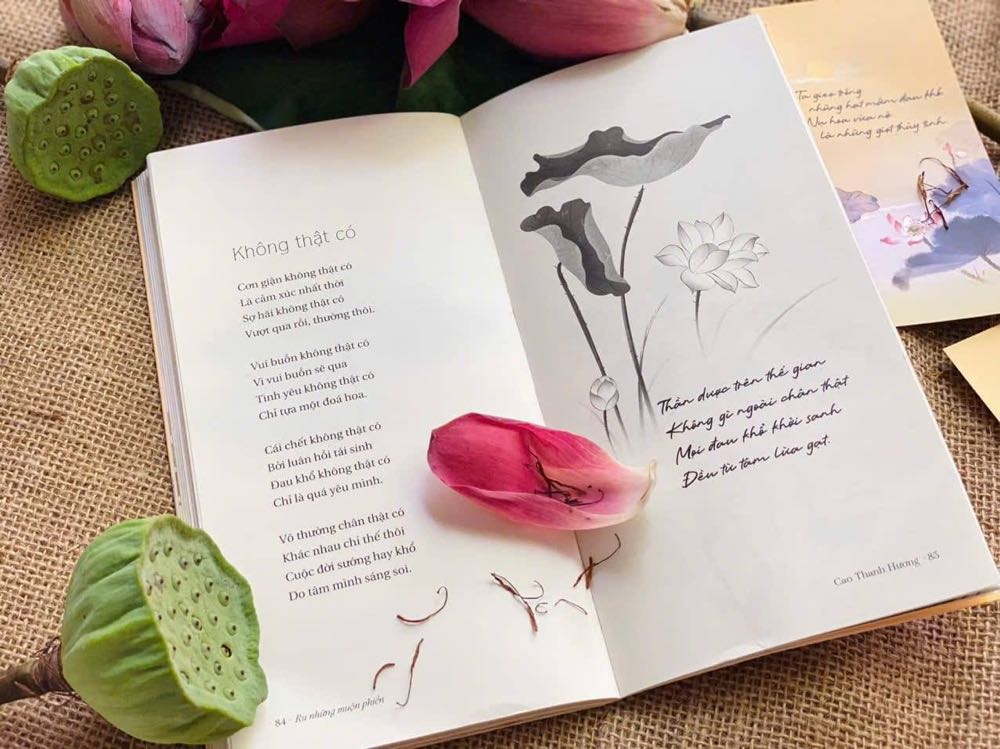 Không thật có
Cơn giận không thật có
Là cảm xúc nhất thời
Sợ hãi không thật có
Vượt qua rồi, thường thôi.
Vui buồn không thật có
Vì vui buồn sẽ qua
Tình yêu không thật có
Chỉ tựa một đoá hoa.
Cái chết không thật có
Bởi luân hồi tái sinh
Đau khổ không thật có
Chỉ là quá yêu mình.
Vô thường chân thật có
Khác nhau chỉ thế thôi
Cuộc đời sướng hay khổ
Do tâm mình sáng soi.
84 - Ru những muộn phiền
Thần dược trên thế gian
Không gì ngoài chân thật
Mọi đau khổ khởi sanh
Đều từ tâm lừa gạt.
Cao Thanh Hương - 85
Ta gieo trồng
những hạt mầm đau khổ
Nụ hoa vừa nở
là những giọt thủy tinh